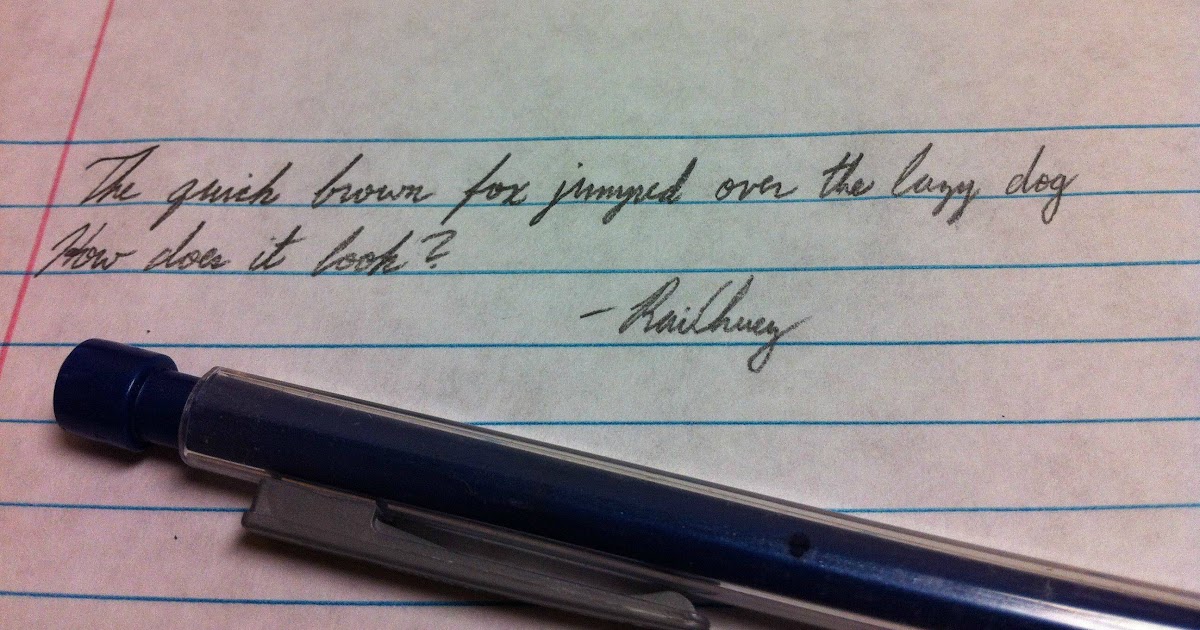 The quick brown fox jumped over the lazy dog
How does it look?
- RaiChuey